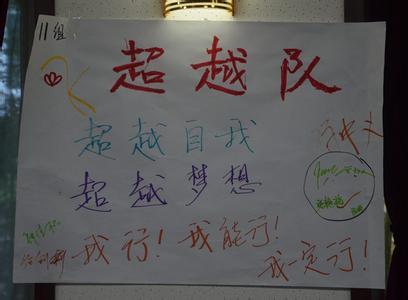 11组
超越队
超越自我
超越梦想
我行！我能行！
我一定行！